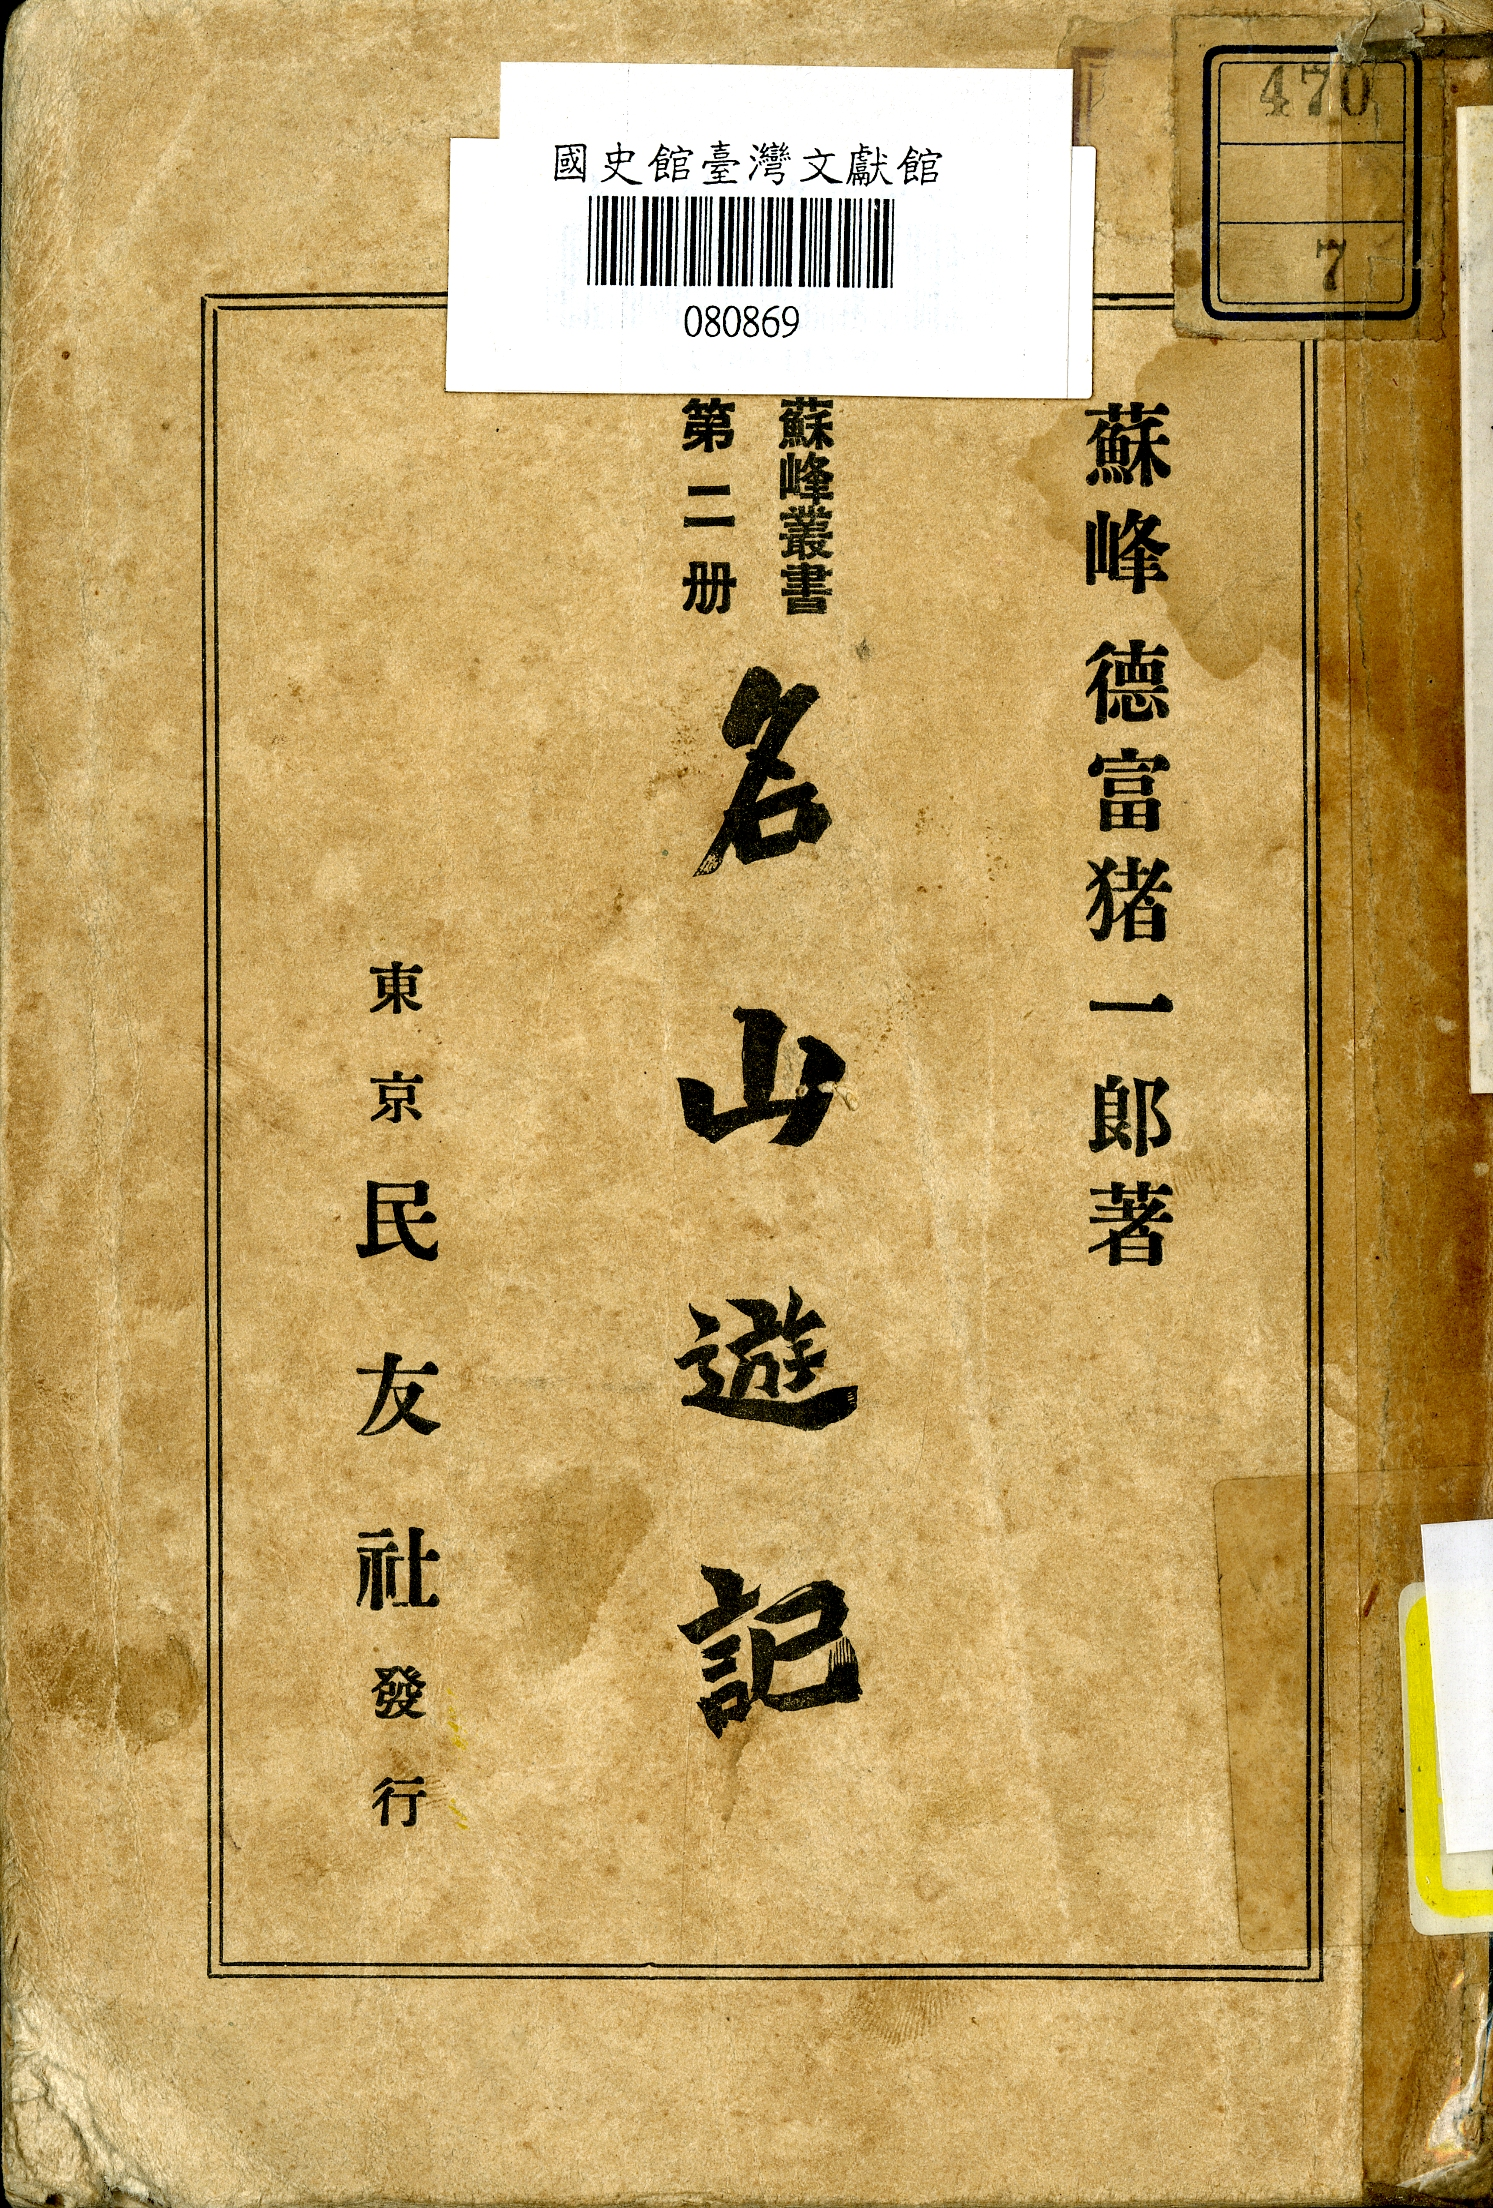 國史館臺灣文獻館
080869
470
7
蘇峰 德富猪一郎著
蘇峰叢書
第二册
名山遊記
東京民友社發行